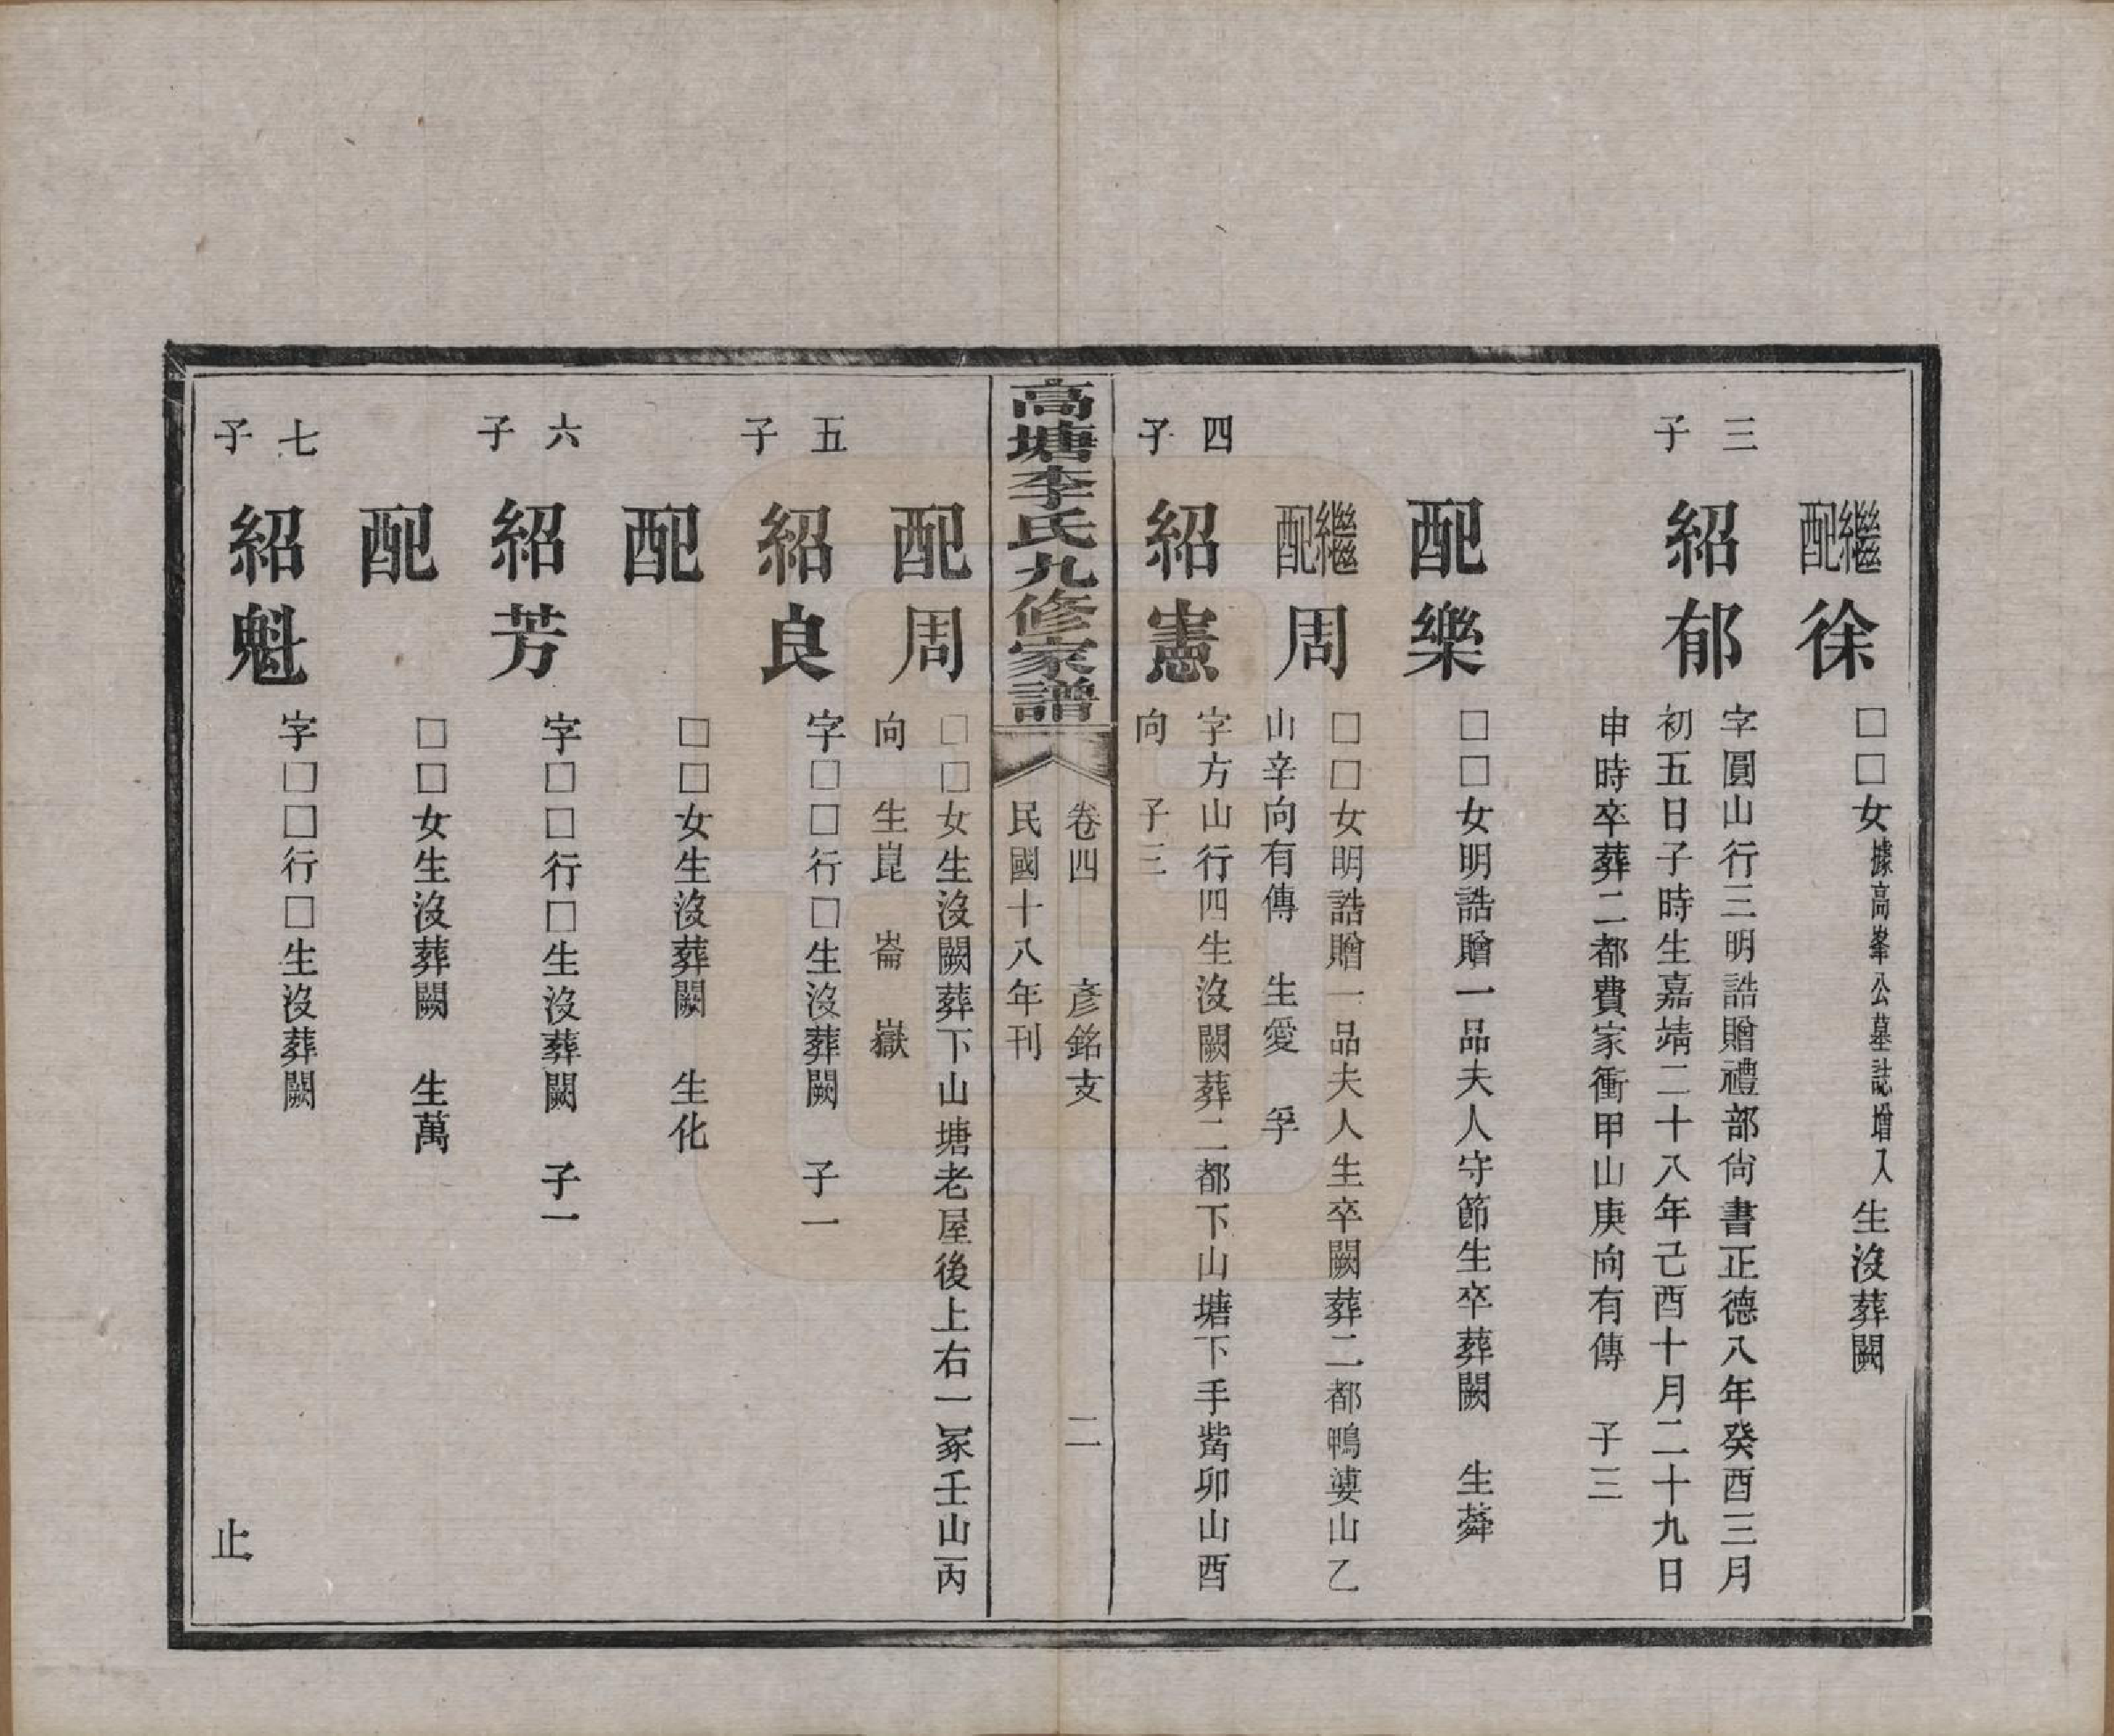 繼配徐□□女據高峯公墓誌增入生沒葬闕
三子紹郁字圓山行三明誥贈禮部尙書正德八年癸酉三月
初五日子時生嘉靖二十八年己酉十月二十九日
申時卒葬二都費家衝甲山庚向有傳　子三
配樂□□女明誥贈一品夫人守節生卒葬闕　生蕣
繼配周□□女明誥贈一品夫人生卒闕葬二都鴨婆山乙
山辛向有傳　生愛　孚
四子紹憲字方山行四生沒闕葬二都下山塘下手觜卯山酉
向　子三
高塘李氏九修家譜
卷四　彥銘支　二
民國十八年刊
配周□□女生沒闕葬下山塘老屋後上右一冢壬山丙
向　生崑　崙　嶽
五子紹良字□□行□生沒葬闕　子一
配□□女生沒葬闕　生化
六子紹芳字□□行□生沒葬闕　子一
配□□女生沒葬闕　生萬
七子紹魁字□□行□生沒葬闕
止